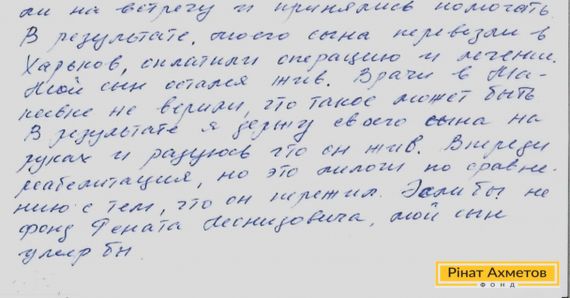 ли на встречу и принялись помогать.
В результате, моего сына перевезли в
Харьков, оплатили операцию и лечение.
Мой сын остался жив. Врачи в Ма-
кеевке не верили, что такое может быть
В результате я держу своего сына на
руках и радуюсь что он жив. Впереди
реабелитация, но это мелочи по сравне-
нию с тем, что он пережил. Если бы не
фонд Рената Леонидовича, мой сын
умер бы.
Рінат Ахметов
ФОНД